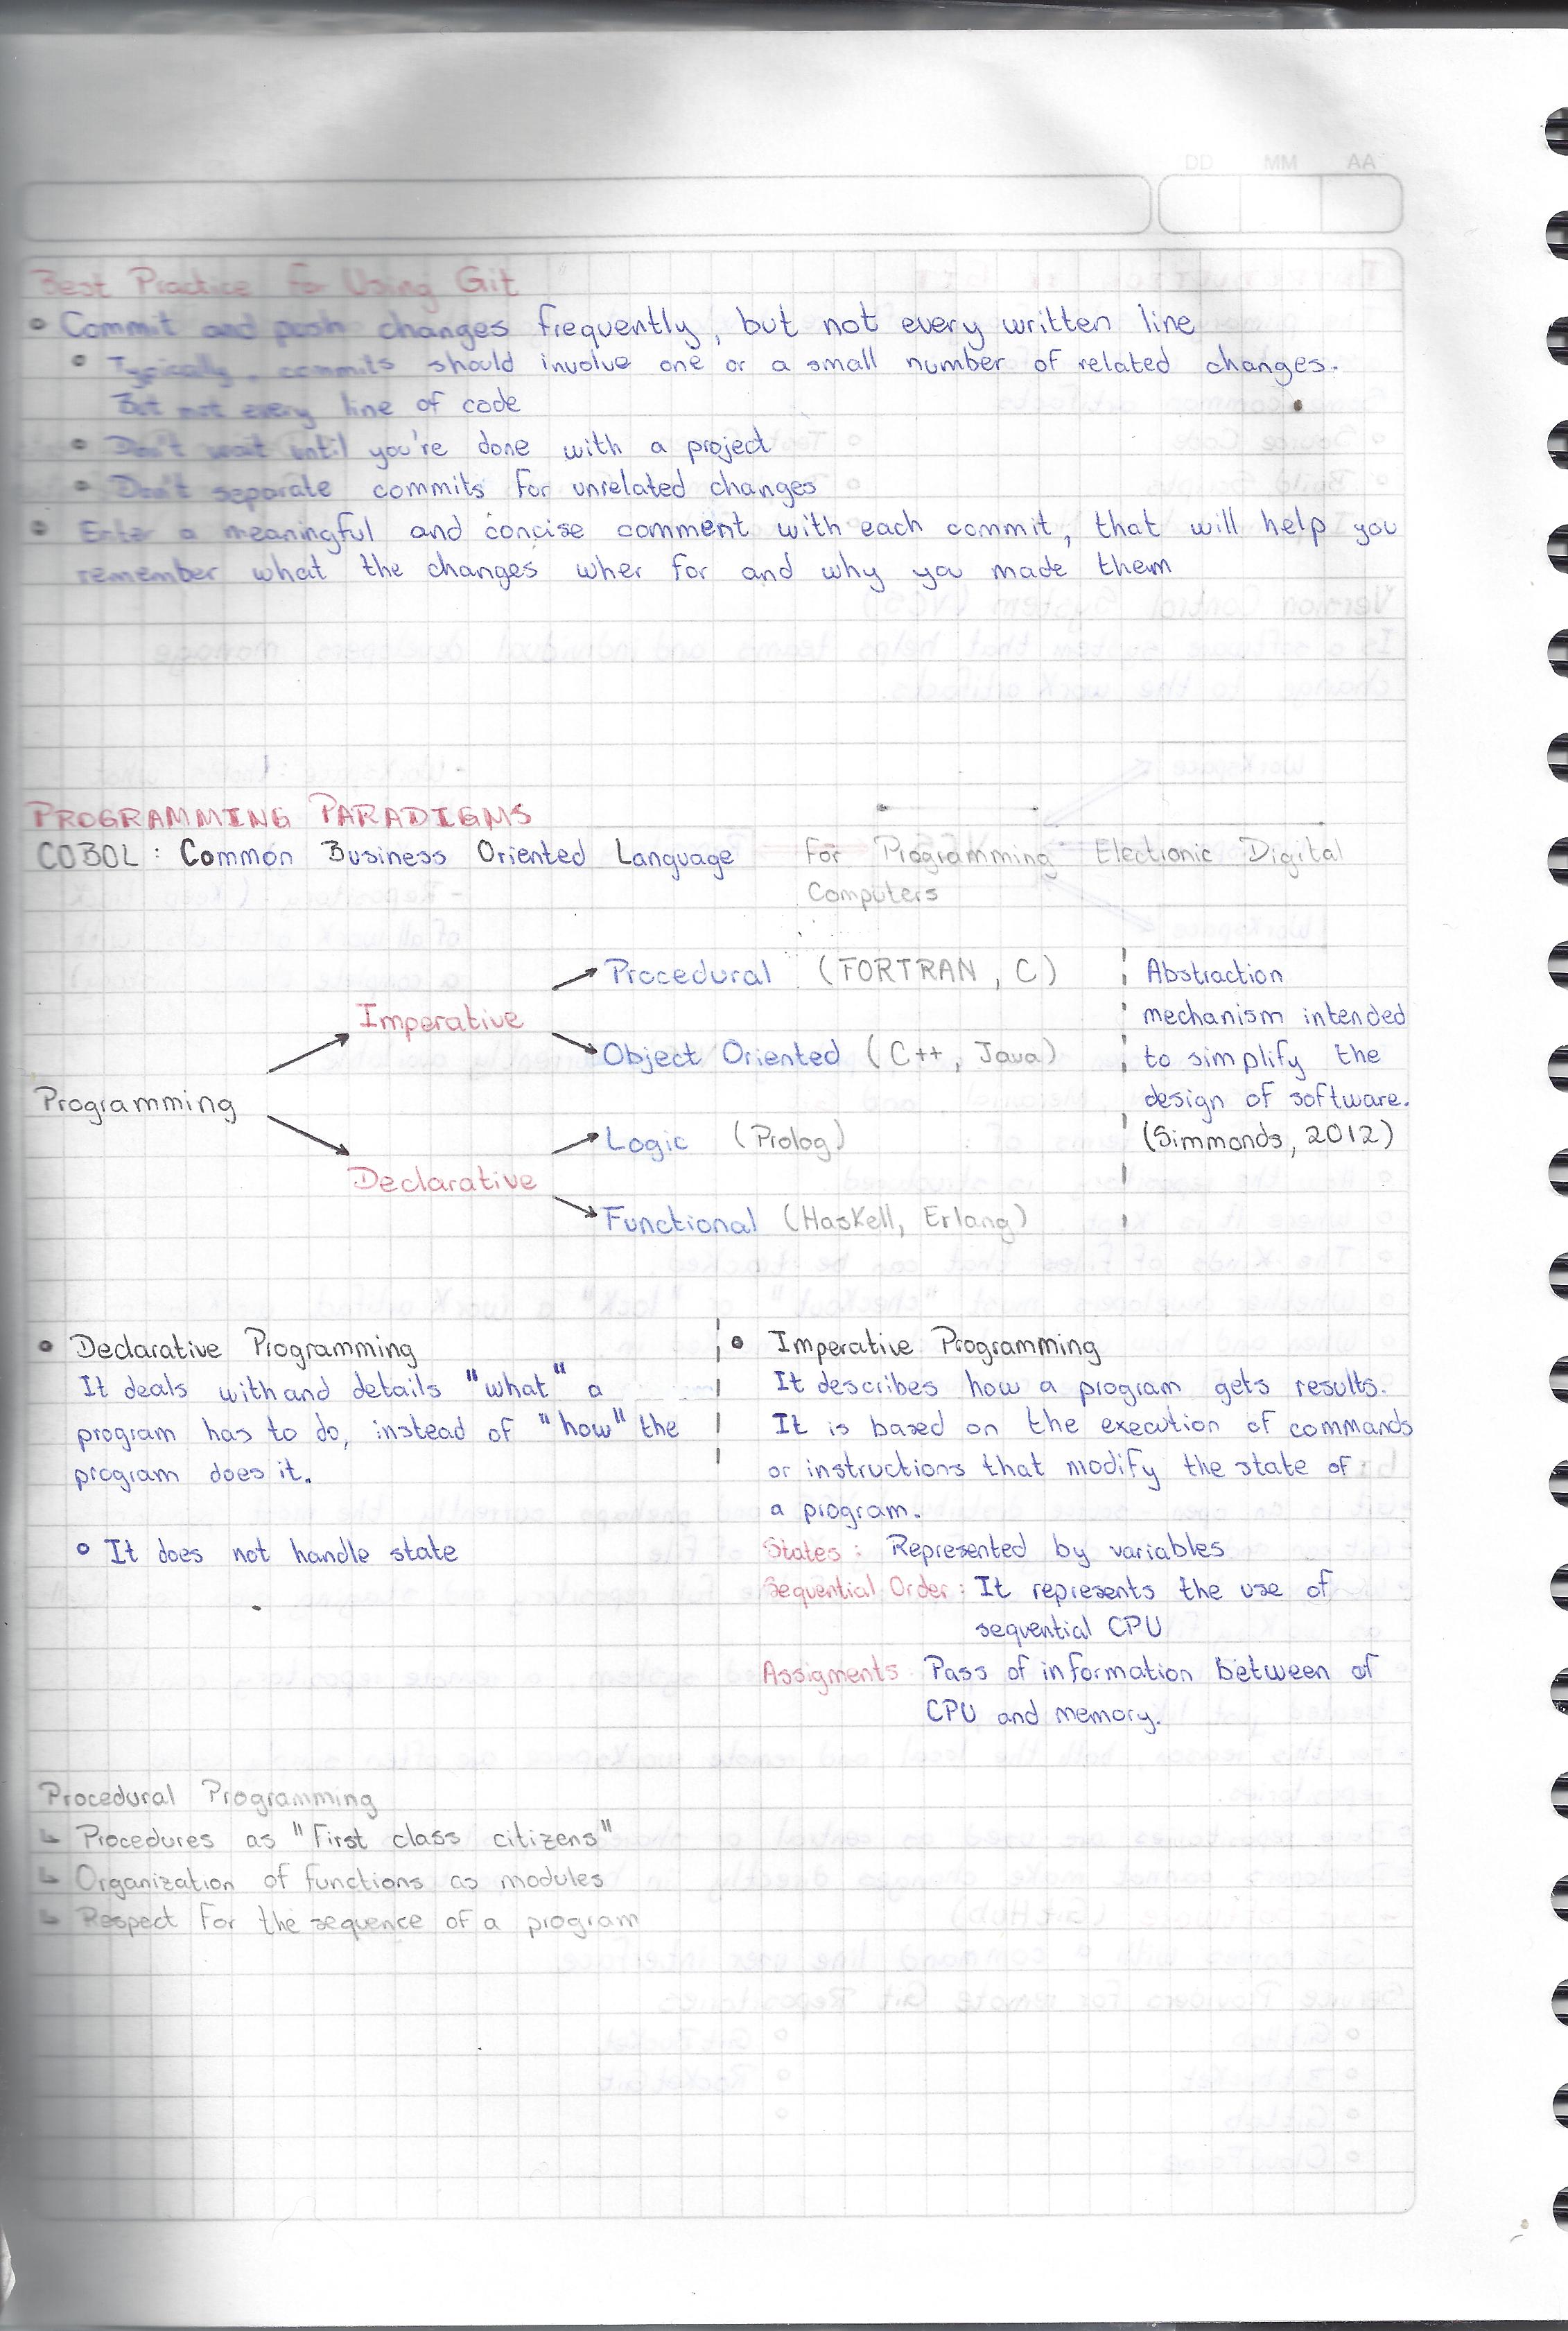 DD MM AA
Best Practice for Using Git
• Commit and push changes frequently, but not every written line
• Typically, commits should involve one or a small number of related changes.
But not every line of code
• Don't wait until you're done with a project
• Don't separate commits for unrelated changes
• Enter a meaningful and concise comment with each commit, that will help you
remember what the changes wher for and why you made them
PROGRAMMING PARADIGMS
COBOL: Common Business Oriented Language For Programming Electronic Digital
Computers
Programming
Imperative
Procedural (FORTRAN, C)
Object Oriented (C++, Java)
Declarative
Logic (Prolog)
Functional (Haskell, Erlang)
Abstraction
mechanism intended
to simplify the
design of software.
(Simmonds, 2012)
• Declarative Programming
It deals with and details "what" a
program has to do, instead of "how" the
program does it.
• It does not handle state
• Imperative Programming
It describes how a program gets results.
It is based on the execution of commands
or instructions that modify the state of
a program.
States: Represented by variables
Sequential Order: It represents the use of
sequential CPU
Assigments Pass of information between of
CPU and memory.
Procedural Programming
↳ Procedures as "First class citizens"
↳ Organization of functions as modules
↳ Respect for the sequence of a program